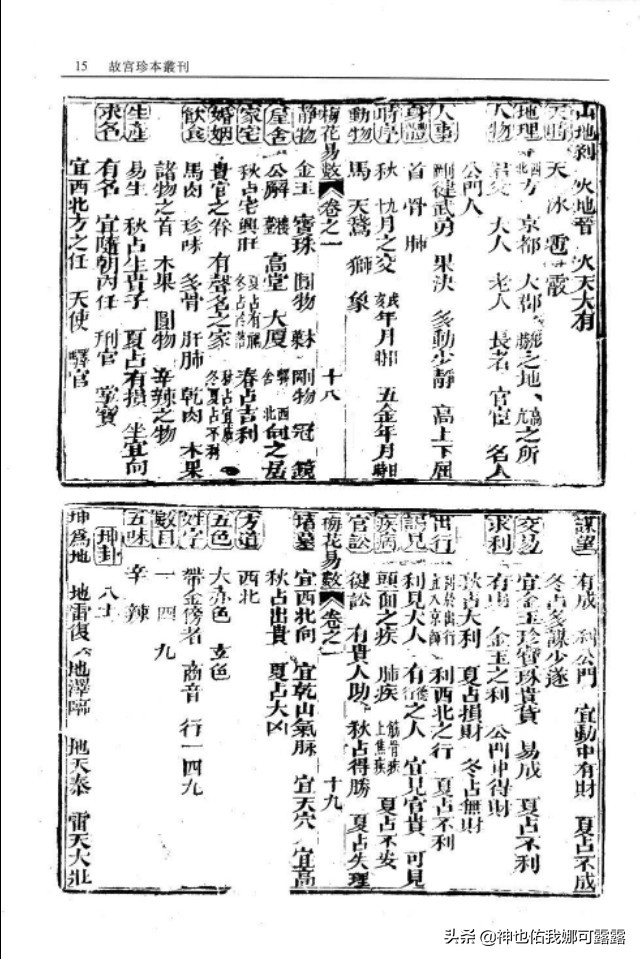 15 故宮珍本叢刊
山地剝 火地晉 火天大有
天時 天 冰 雹 霰
地理 西北方 京都 大郡 形勝之地 高亢之所
人物 君父 大人 老人 長者 官宦 名人
公門人
人事 剛健武勇 果決 多動少靜 高上下屈
身體 首 骨 肺
時序 秋 九十月之交 戌亥年月日時 五金年月日時
動物 馬 天鵝 獅 象
梅花易數 卷之一 十八
靜物 金玉 寶珠 圓物 木果 剛物 冠 鏡
屋舍 公廨 樓臺 高堂 大廈 驛舍 西北向之居
家宅 秋占宅興旺 夏占有禍 冬占冷落 春占吉利
婚姻 貴官之眷 有聲名之家 秋占宜成 冬夏占不利
飲食 馬肉 珍味 多骨 肝肺 乾肉 木果
諸物之首 木果 圓物 辛辣之物
生產 易生 秋占生貴子 夏占有損 坐宜向
求名 有名 宜隨朝內任 刑官 掌寶
宜西北方之任 天使 驛官
謀望 有成 利公門 宜動中有財 夏占不成
冬占多謀少遂
交易 宜金玉珍寶珠貴貨 易成 夏占不利
求利 有財 金玉之利 公門中得財
秋占大利 夏占損財 冬占無財
出行 利於出行 宜入京師 利西北之行 夏占不利
謁見 利見大人 有德行之人 宜見官貴 可見
疾病 頭面之疾 肺疾 筋骨疾 上焦疾 夏占不安
官訟 健訟 有貴人助 秋占得勝 夏占失理
梅花易數 卷之一 十九
墳墓 宜西北向 宜乾山氣脈 宜天穴 宜高
秋占出貴 夏占大凶
方道 西北
五色 大赤色 玄色
姓字 帶金傍者 商音 行一四九
數目 一 四 九
五味 辛 辣
坤卦 八土
坤為地 地雷復 地澤臨 地天泰 雷天大壯
头条 @神也佑我娜可露露